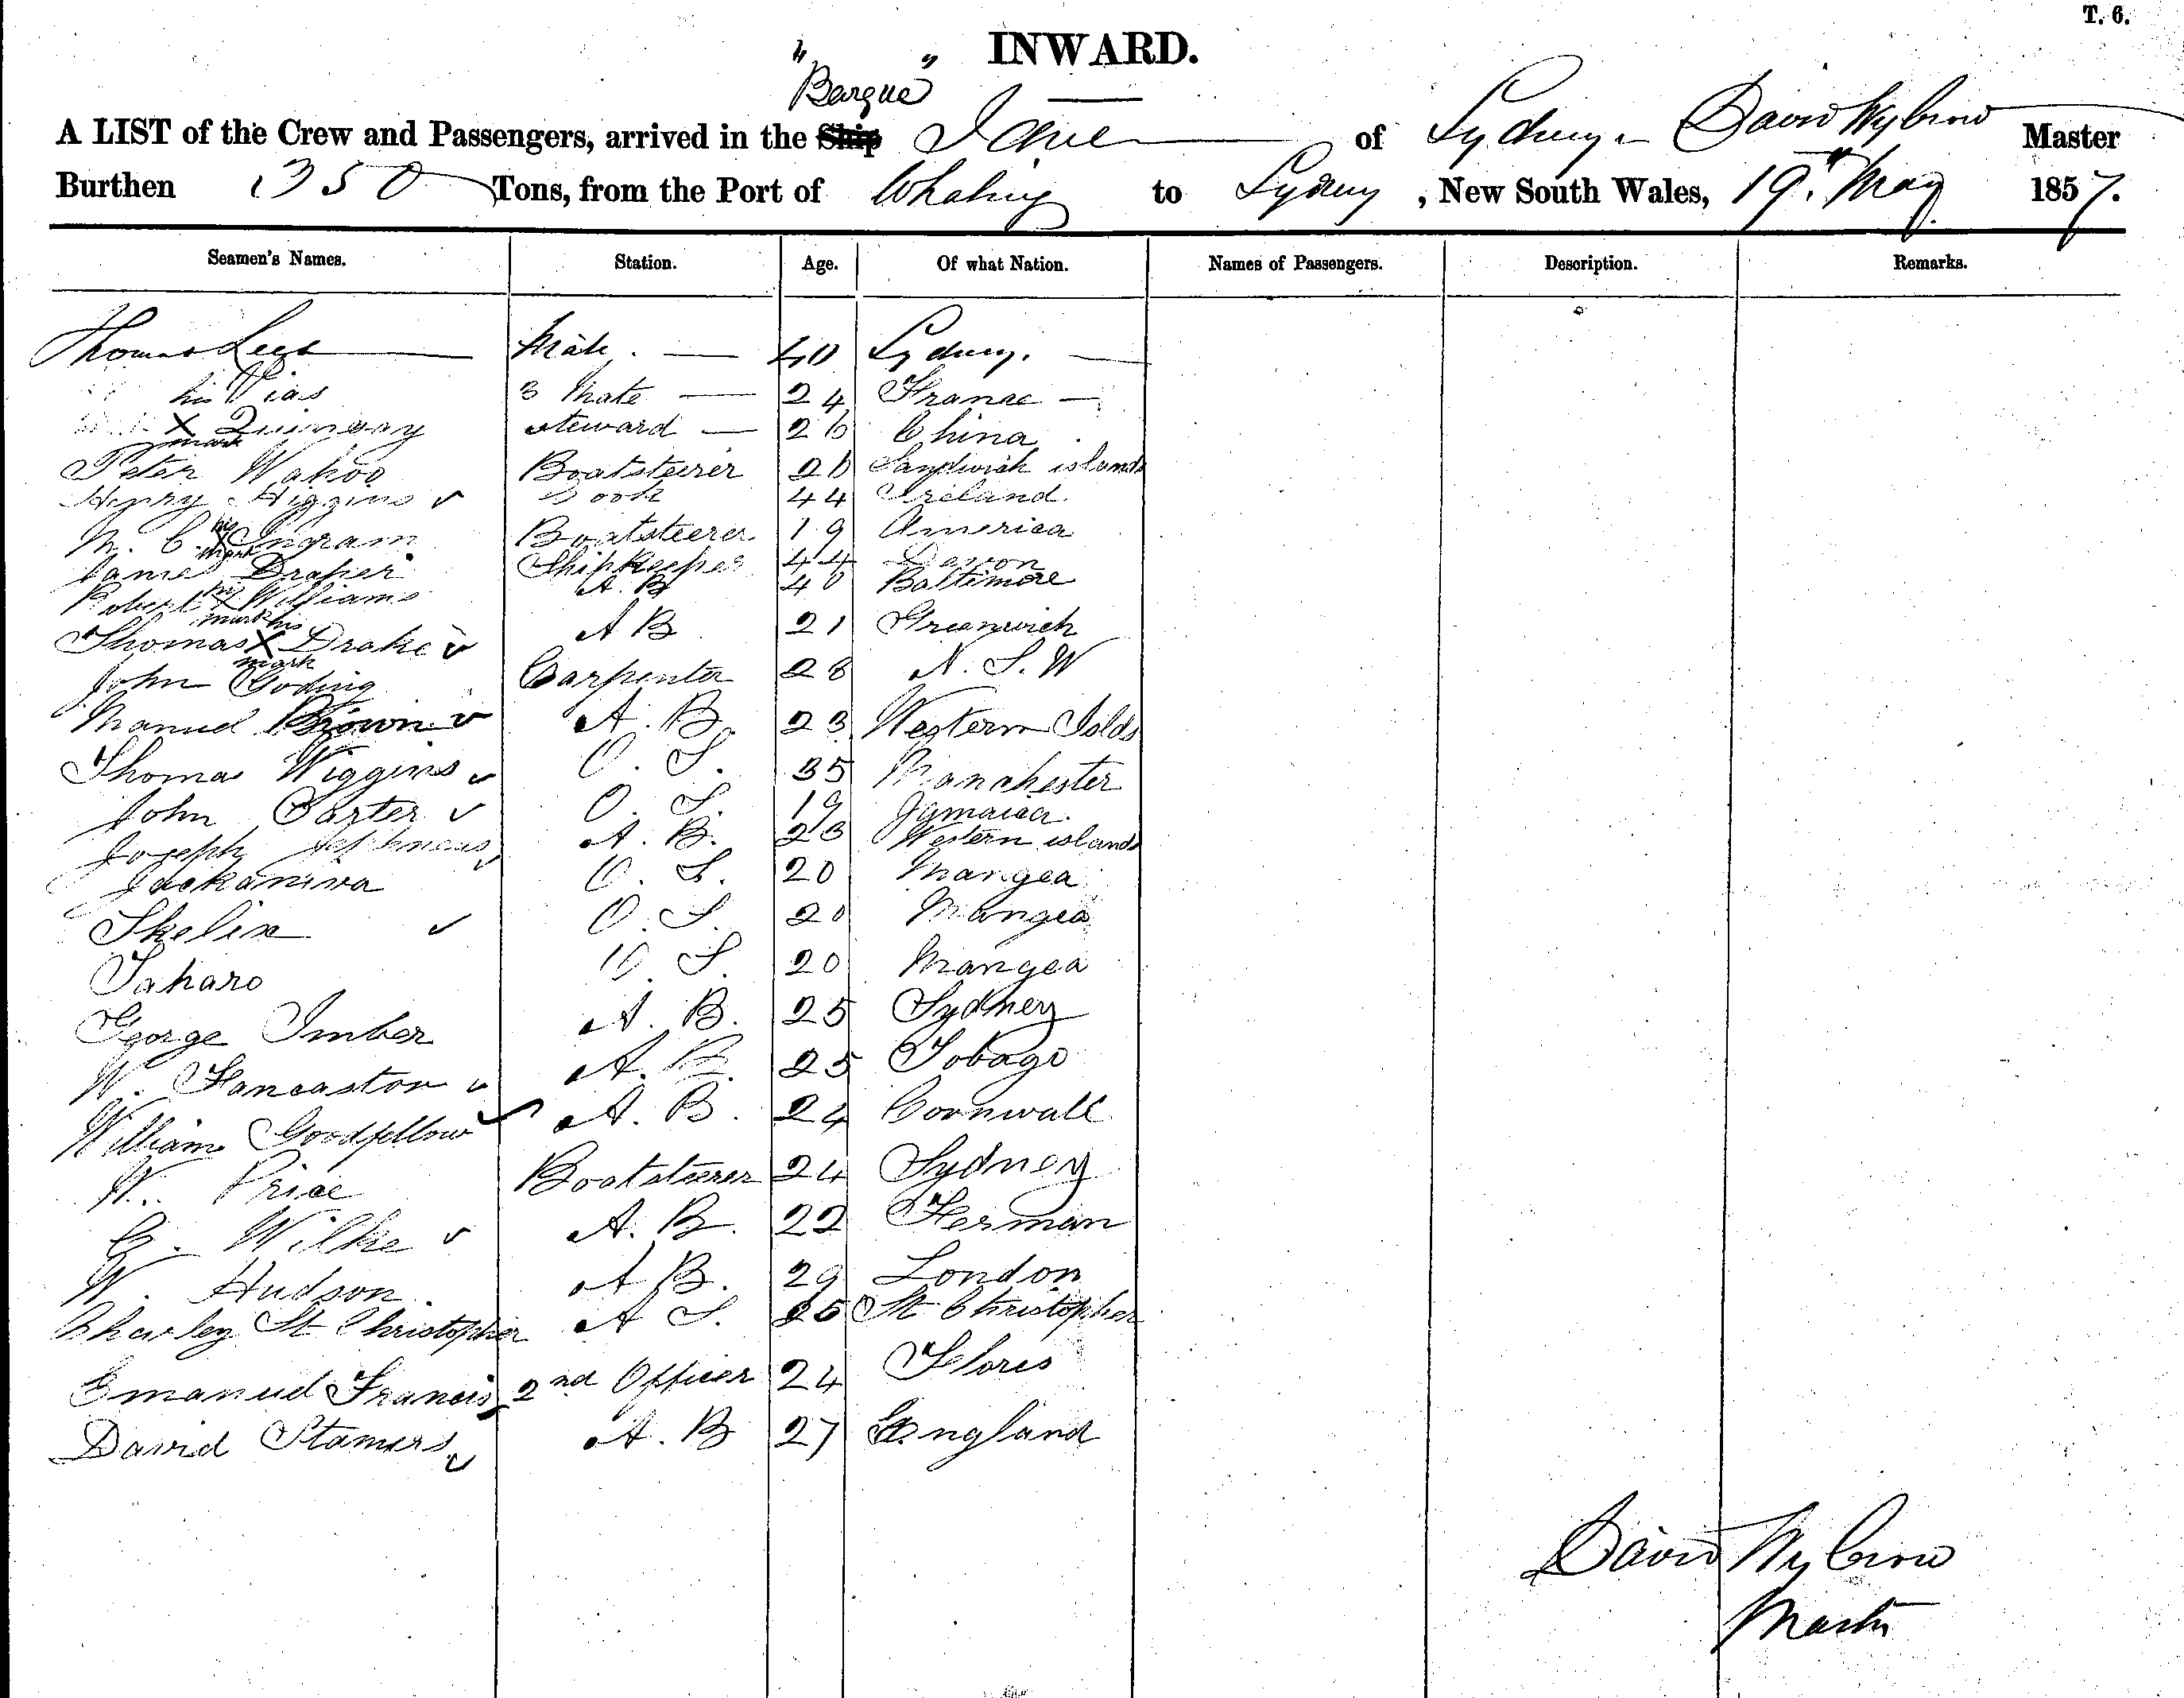 T. 6.
INWARD.
"Barque"
A LIST of the Crew and Passengers, arrived in the Ship Jane of Sydney. David Wybrow Master
Burthen 350 Tons, from the Port of Whaling to Sydney, New South Wales, 19th May 1857.
Seamen's Names. Station. Age. Of what Nation. Names of Passengers. Description. Remarks.
Thomas Lees Mate. 40 Sydney.
3 Mate 24 France
his
X Quingay steward 26 China
mark
Peter Wahoo Boatsteerer 26 Sandwich islands
Henry Higgins Cook 44 Ireland.
his
M. C. X Ingram Boatsteerer 19 America
mark
James Draper Shipkeeper 44 Devon
his
Robert X Williams A. B 40 Baltimore
mark his
Thomas X Drake A B 21 Greenwich
mark
John Goding Carpenter 28 N. S. W
Manuel Brown A. B. 23 Western Islds
Thomas Wiggins O. S. 35 Manchester
John Carter O. S. 19 Jamaica.
Joseph A. B. 23 Western islands
Jackaniva O. S. 20 Mangea
Skelin O. S. 20 Mangea
Taharo O S. 20 Mangea
George Imber A. B. 25 Sydney
W. Lancaston A. B. 25 Tobago
William Goodfellow A. B. 24 Cornwall
W. Price Boatsteerer 24 Sydney
G. Wilke A. B. 22 German
W. Hudson. A B. 29 London
Charley St Christopher A S. 25 St Christopher
Emanuel Francis 2nd Officer 24 Flores
David Stamers A. B 27 England
David Wybrow
Master